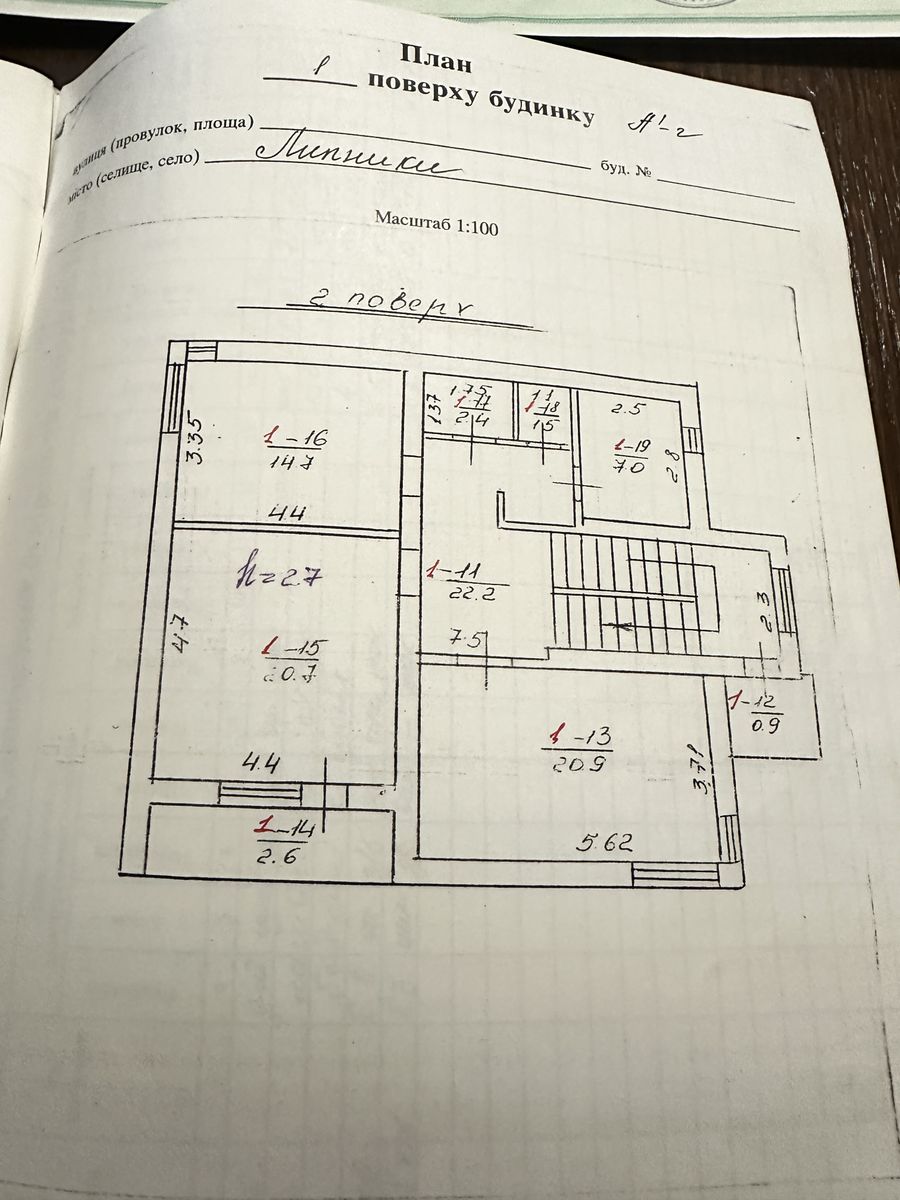 План
1 поверху будинку А'-2
вулиця (провулок, площа) буд. №
місто (селище, село) Липники
Масштаб 1:100
2 поверх
1.75
1.37
1-17
2.4
1.1
1-18
1.5
2.5
1-19
7.0
2.8
3.35
1-16
14.7
4.4
h=2.7
1-11
22.2
7.5
2.3
4.7
1-15
20.7
4.4
1-12
0.9
1-13
20.9
3.71
5.62
1-14
2.6